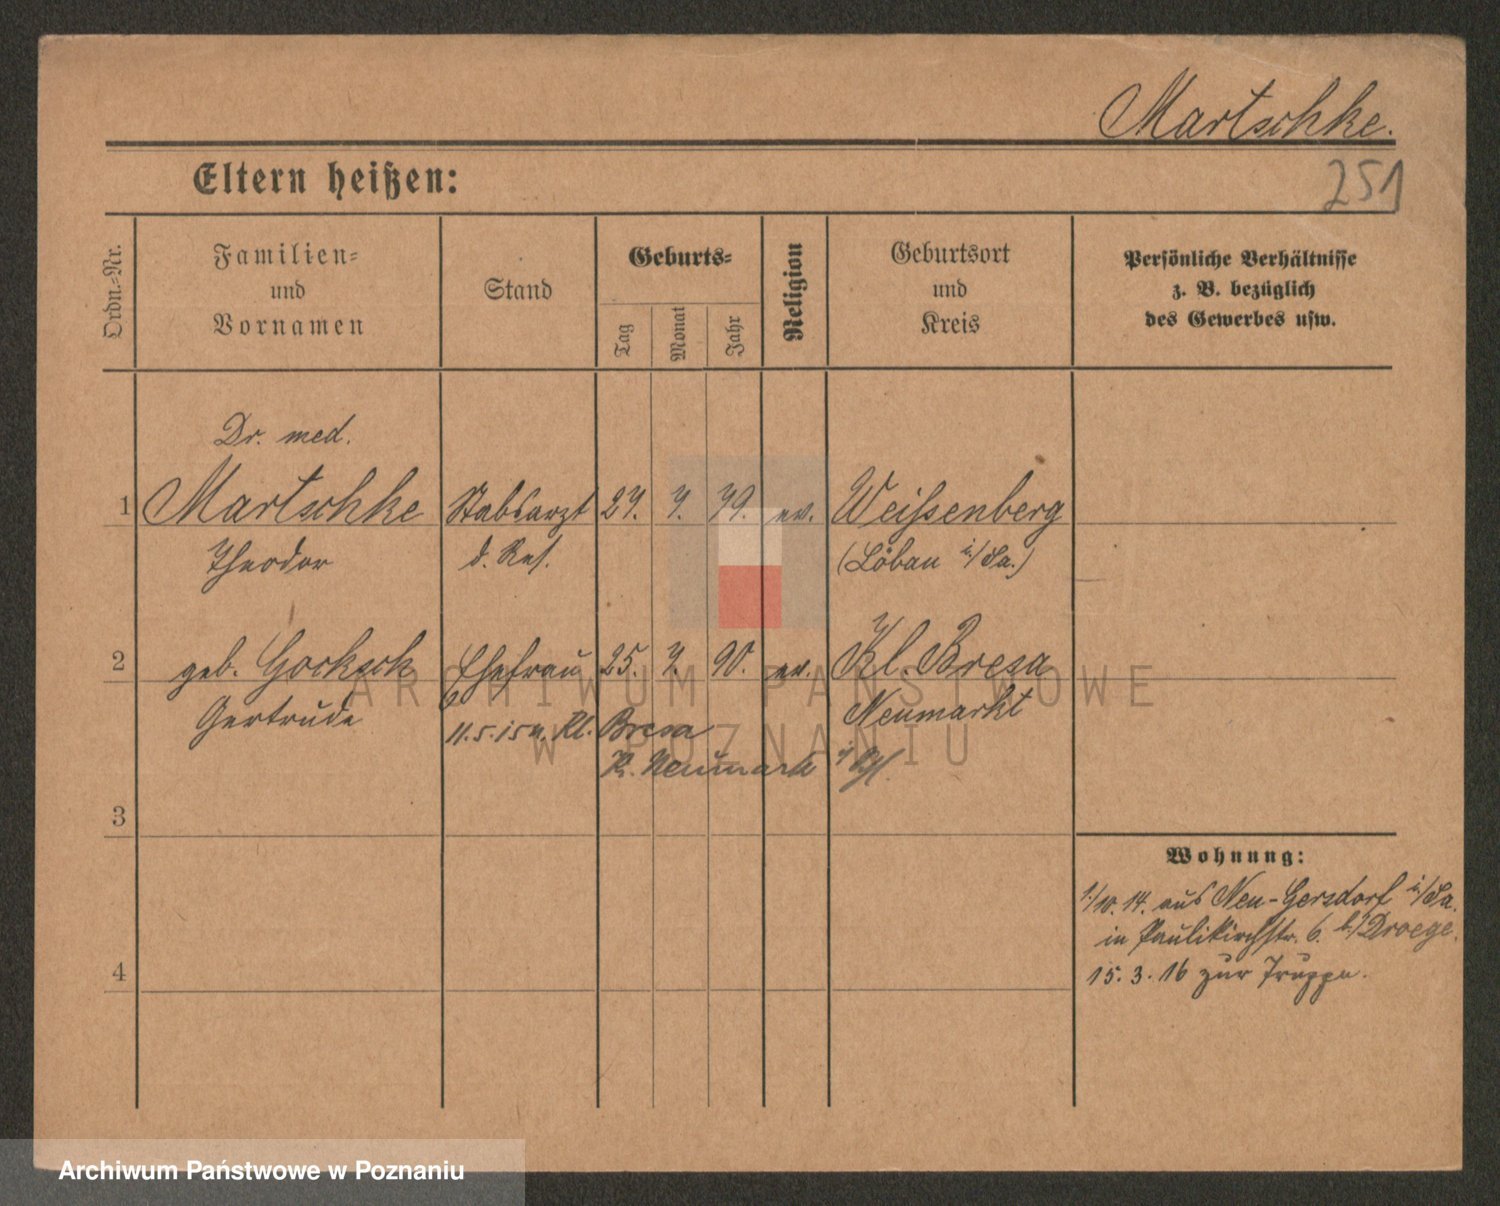 Martschke.
251
Eltern heißen:
Ordn.-Nr.
Familien-
und
Vornamen
Stand
Geburts-
Tag
Monat
Jahr
Religion
Geburtsort
und
Kreis
Persönliche Verhältnisse
z. B. bezüglich
des Gewerbes usw.
Dr. med.
1 Martschke Stabsarzt 27. 7. 79. ev. Weissenberg
Theodor d. Res. (Löbau i/Sa.)
2 geb. Gocksch Ehefrau 25. 7. 90. ev. Kl. Bresa
Gertrude Neumarkt
11.5.15 n. Kl. Bresa
Kr. Neumark
3
Wohnung:
1./10. 14. aus Neu-Gersdorf i/Sa.
in Paulikirchstr. 6. b/Droege.
4
15. 3. 16 zur Truppe.
ARCHIWUM PAŃSTWOWE
W POZNANIU
Archiwum Państwowe w Poznaniu